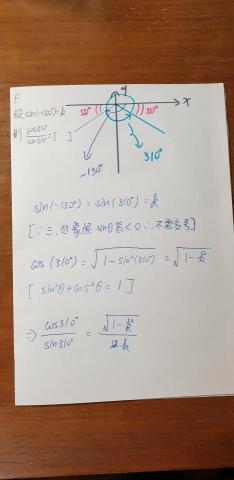 F
設 sin(-130°)=k
則 cos310°/sin310° = [ ]
y
x
50°
50°
-130°
310°
sin(-130°) = sin(310°) = k
[∵三,四象限 sinθ皆<0 ∴不需變号]
cos(310°) = √(1-sin²(310°)) = √(1-k²)
[ sin²θ+cos²θ = 1 ]
⇒ cos310°/sin310° = √(1-k²)/k